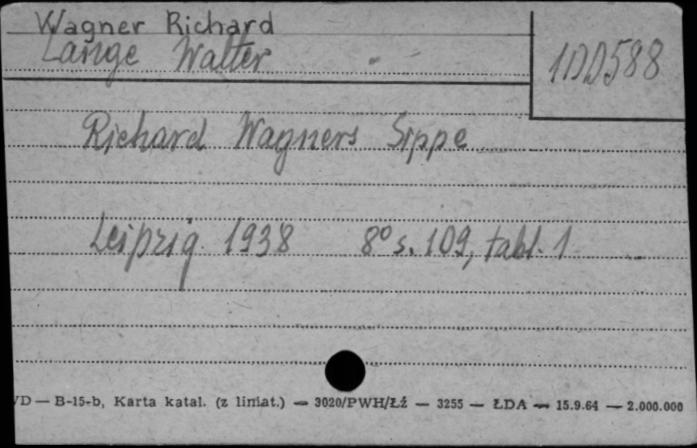 Wagner Richard
Lange Walter
1DD588
Richard Wagners Sippe
Leipzig 1938 8° s. 109, tabl. 1
VD — B-15-b, Karta katal. (z liniat.) — 3020/PWH/Łź — 3255 — ŁDA — 15.9.64 — 2.000.000